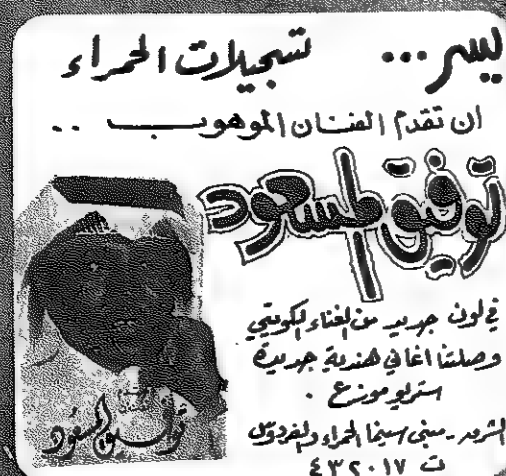 يسر... تسجيلات الحمراء
ان تقدم الفنان الموهوب ..
توفيق المسعود
في لون جديد من الغناء الكويتي
وصلتنا اغاني هندية جديدة
ستريو موزع .
مبنى سينما الحمراء والفردوس
ت ٤٣٢٠١٧
توفيق المسعود